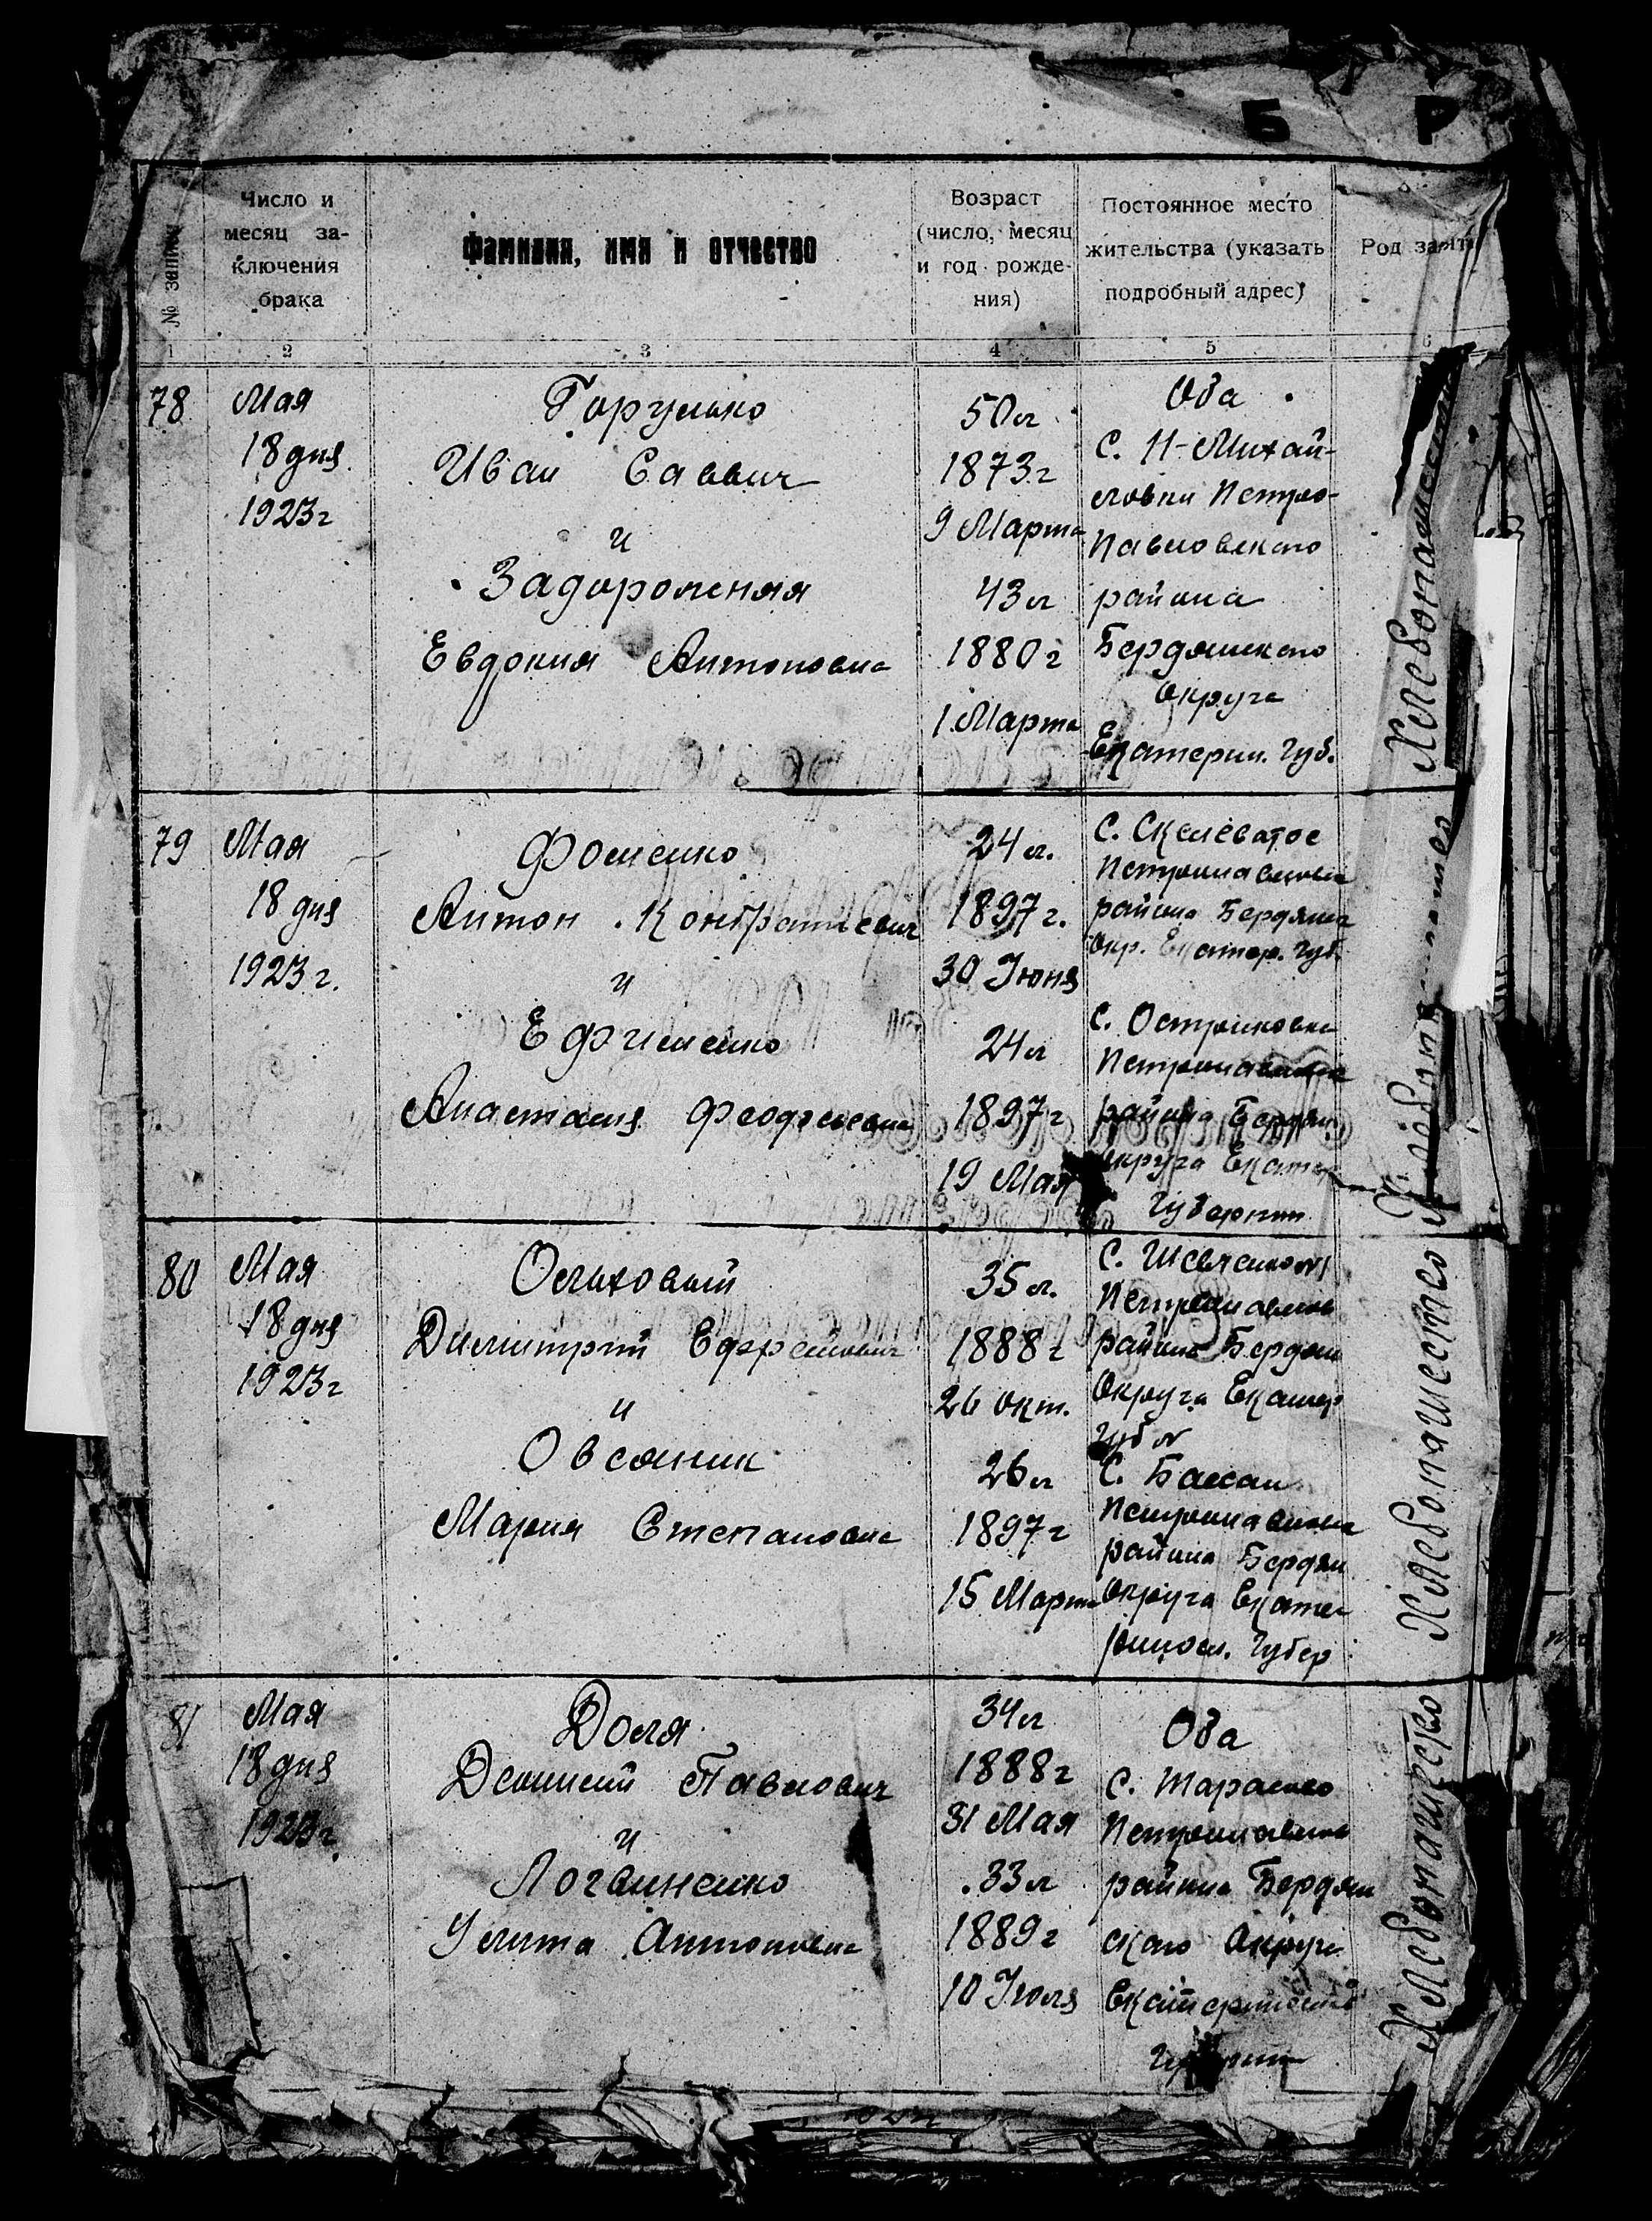 Б Р
№ записи
Число и
месяц за-
ключения
брака
Фамилия, имя и отчество
Возраст
(число, месяц
и год рожде-
ния)
Постоянное место
жительства (указать
подробный адрес)
Род заняти
1 2 3 4 5 6
78
Мая
18 дня
1923 г
Горулько
Иван Саввич
и
Задорожная
Евдокия Антоновна
50 л
1873 г
9 Марта
43 л
1880 г
1 Марта
Оба
С. Н-Михай-
ловки Петро-
Павловского
района
Бердянского
Округа
Екатерин. Губ.
Хлебопашество
79
Мая
18 дня
1923 г.
Фоменко
Антон Кондратьевич
и
Ефименко
Анастасия
24 л.
1897 г.
30 Июня
24 л
1897 г
19 Мая
С. Скелеватое
Петропавловск
района Бердянск
Окр. Екатер. Губ.
С. Остриковка
Петропавловск
района Бердян
Округа Екатер
Губернии
80
Мая
18 дня
1923 г
Ольховый
Димитрий Ефремович
и
Овсяник
Мария Степановна
35 л.
1888 г
26 Окт.
26 л
1897 г
15 Марта
С.
Петропавлов
района Бердян
Округа Екатер
Губ
С. Басань
Петропавловск
района Бердян
Округа Екате
риносл. Губер
Хлебопашество
81
Мая
18 дня
1923 г.
Доля
Дионисий Павлович
и
Логвиненко
Улита Антоновна
34 л
1888 г
31 Мая
33 л
1889 г
10 Июля
Оба
С. Тарасово
Петропавлов
района Бердян
ского Округа
Губернии
Хлебопашество